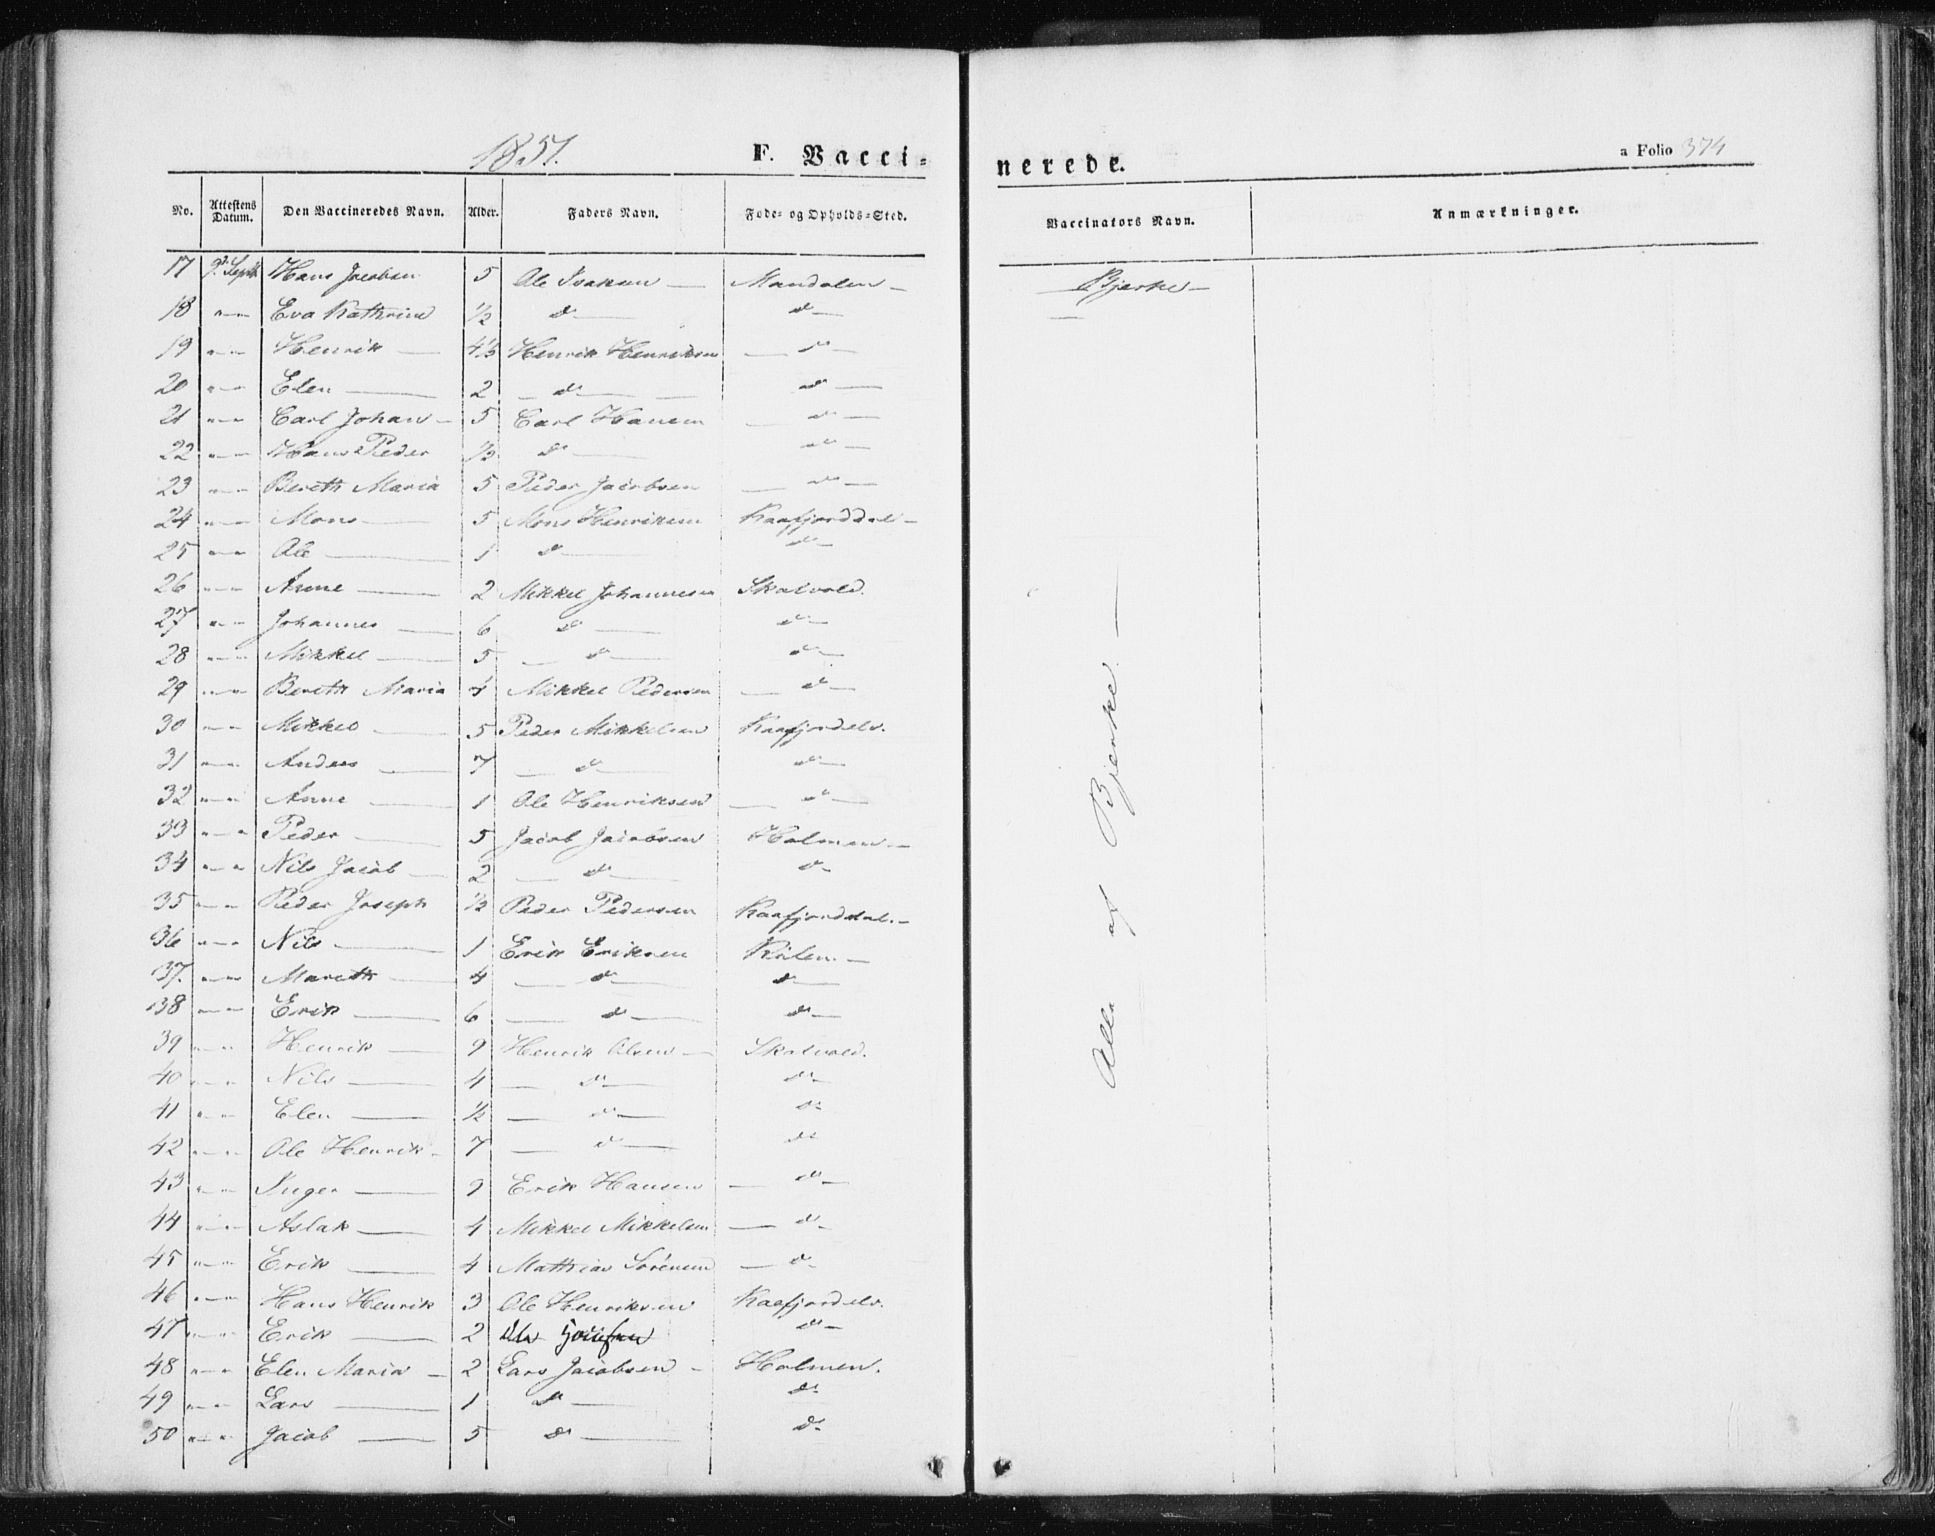 1851.
F. Vacci=
nerede.
a Folio 374
No. Attestens Datum. Den Vaccineredes Navn. Alder. Faders Navn. Føde= og Opholds=Sted. Vaccinators Navn. Anmærkninger.
17 Septb Hans Jacobsen 5 Ole Isaksen Mandalen Bjerke
18 " Eva Kathrine ½ do do
19 " Henrik 4½ Henrik Henriksen do
20 " Elen 2 do do
21 " Carl Johan 5 Carl Hansen do
22 " Hans Peder ½ do do
23 " Bereth Maria 5 Peder Jacobsen do
24 " Mons 5 Mons Henriksen Kaafjorddal
25 " Ole 1 do do
26 " Anne 2 Mikkel Johannesen Skalvold.
27 " Johannes 6 do do
28 " Mikkel 5 do do
29 " Bereth Maria Mikkel Pedersen do
30 " Mikkel 5 Peder Mikkelsen Kaafjordelv.
31 " Anders 7 do do
32 " Anne 1 Ole Henriksen do
33 " Peder 5 Jacob Jacobsen Holmen
34 " Nils Jacob 2 do do
35 " Peder Joseph ½ Peder Pedersen Kaafjorddal.
36 " Nils 1 Erik Eriksen
37. " Mareth 4 do do
38 " Erik 6 do do
39 " Henrik 9 Henrik Olsen Skalvold.
40 " Nils 4 do do
41 " Elen ½ do do
42 " Ole Henrik 7 do do
43 " Inger 9 Erik Hansen do
44 " Aslak 4 Mikkel Mikkelsen do
45 " Erik 4 Mathias Sørensen do
46 " Hans Henrik 3 Ole Henriksen Kaafjordelv.
47 " Erik 2 do
48 " Elen Maria 2 Lars Jacobsen Holmen.
49 " Lars 1 do do
50 " Jacob 5 do do
Alle af Bjerke